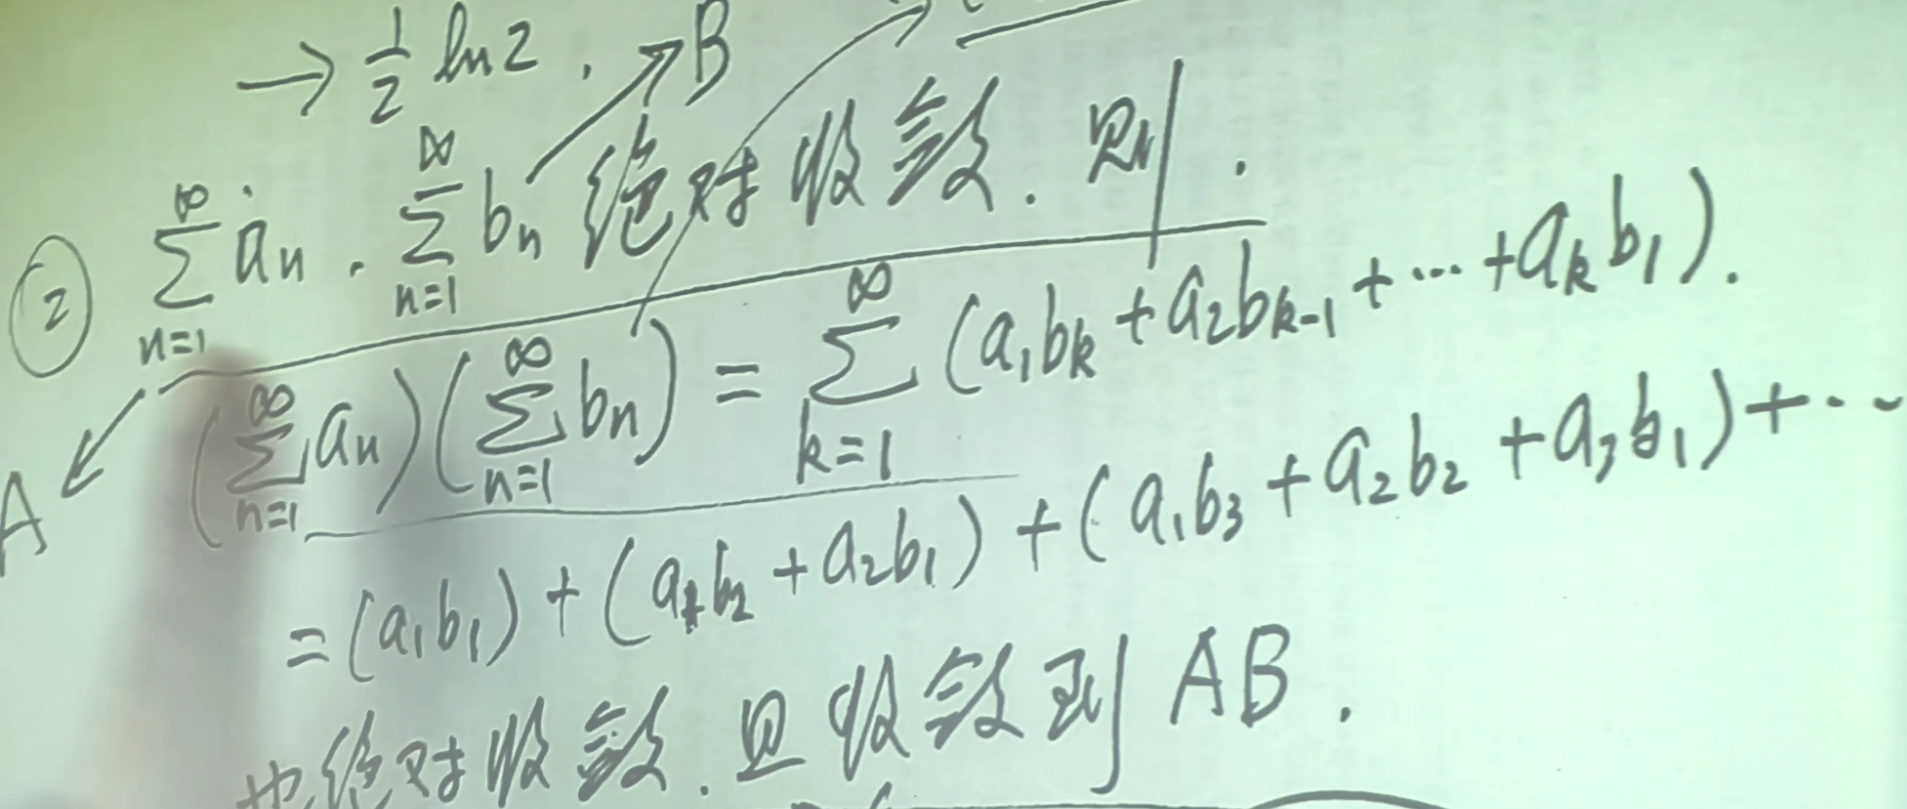 → 1/2 ln2 . → B
② ∑_{n=1}^{∞} a_n . ∑_{n=1}^{∞} b_n 绝对收敛. 则.
(∑_{n=1}^{∞} a_n)(∑_{n=1}^{∞} b_n) = ∑_{k=1}^{∞} (a_1b_k + a_2b_{k-1} + ⋯ + a_kb_1).
A
= (a_1b_1) + (a_1b_2 + a_2b_1) + (a_1b_3 + a_2b_2 + a_3b_1) + ⋯
也绝对收敛. 且收敛到 AB.